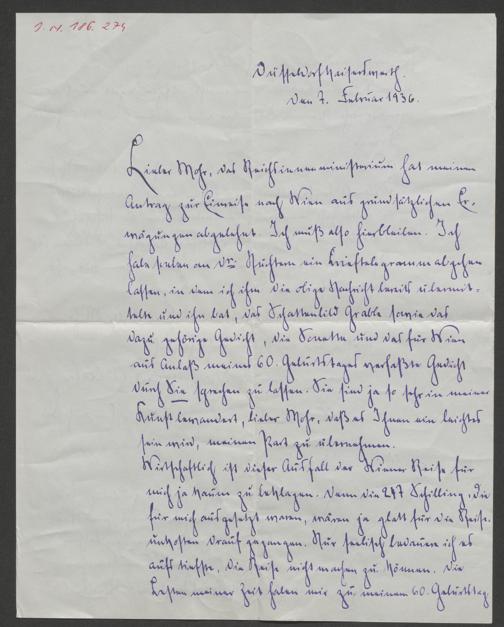 I. N. 186. 274
Düsseldorf Kaiserswerth.
den 7. Februar 1936.
Lieber Mohr, das Reichsinnenministerium hat meinen
Antrag zur Einreise nach Wien aus grundsätzlichen Er-
wägungen abgelehnt. Ich muß also hierbleiben. Ich
habe soeben an Dr. ein Brieftelegramm abgehen
lassen, in dem ich ihm die obige Nachricht bereits übermit-
telte und ihn bat, das Schattenbild Grabbe sowie das
dazu gehörige Gedicht, die Sonette und das für Wien
aus Anlaß meines 60. Geburtstages verfaßte Gedicht
durch Sie sprechen zu lassen. Sie sind ja so sehr in meiner
Kunst bewandert, lieber Mohr, daß es Ihnen ein leichtes
sein wird, meinen Part zu übernehmen.
Wirtschaftlich ist dieser Ausfall der Wiener Reise für
mich ja kaum zu beklagen. Denn die 247 Schilling, die
für mich ausgesetzt waren, wären ja glatt für die Reise-
unkosten drauf gegangen. Nur seelisch bedaure ich es
aufs tiefste, die Reise nicht machen zu können. Die
Besten meiner Zeit haben mir zu meinem 60. Geburtstag